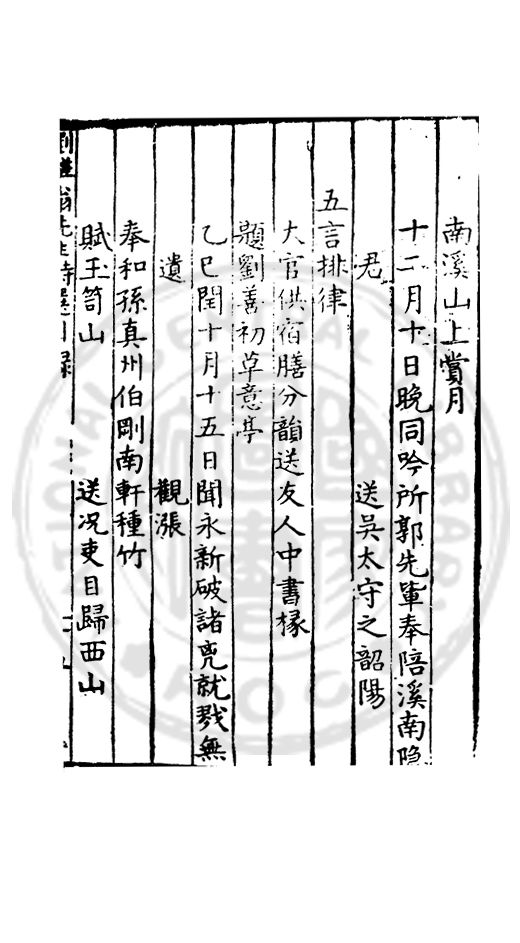 南溪山上賞月
十二月十日晚同吟所郭先軰奉陪溪南隐
君 送吳太守之韶陽
五言排律
大官供宿膳分韻送友人中書椽
題劉善初草意亭
乙巳閏十月十五日聞永新破諸兇就戮無
遺 觀漲
奉和孫真州伯剛南軒種竹
賦玉笥山 送况吏目歸西山
先生詩選目録